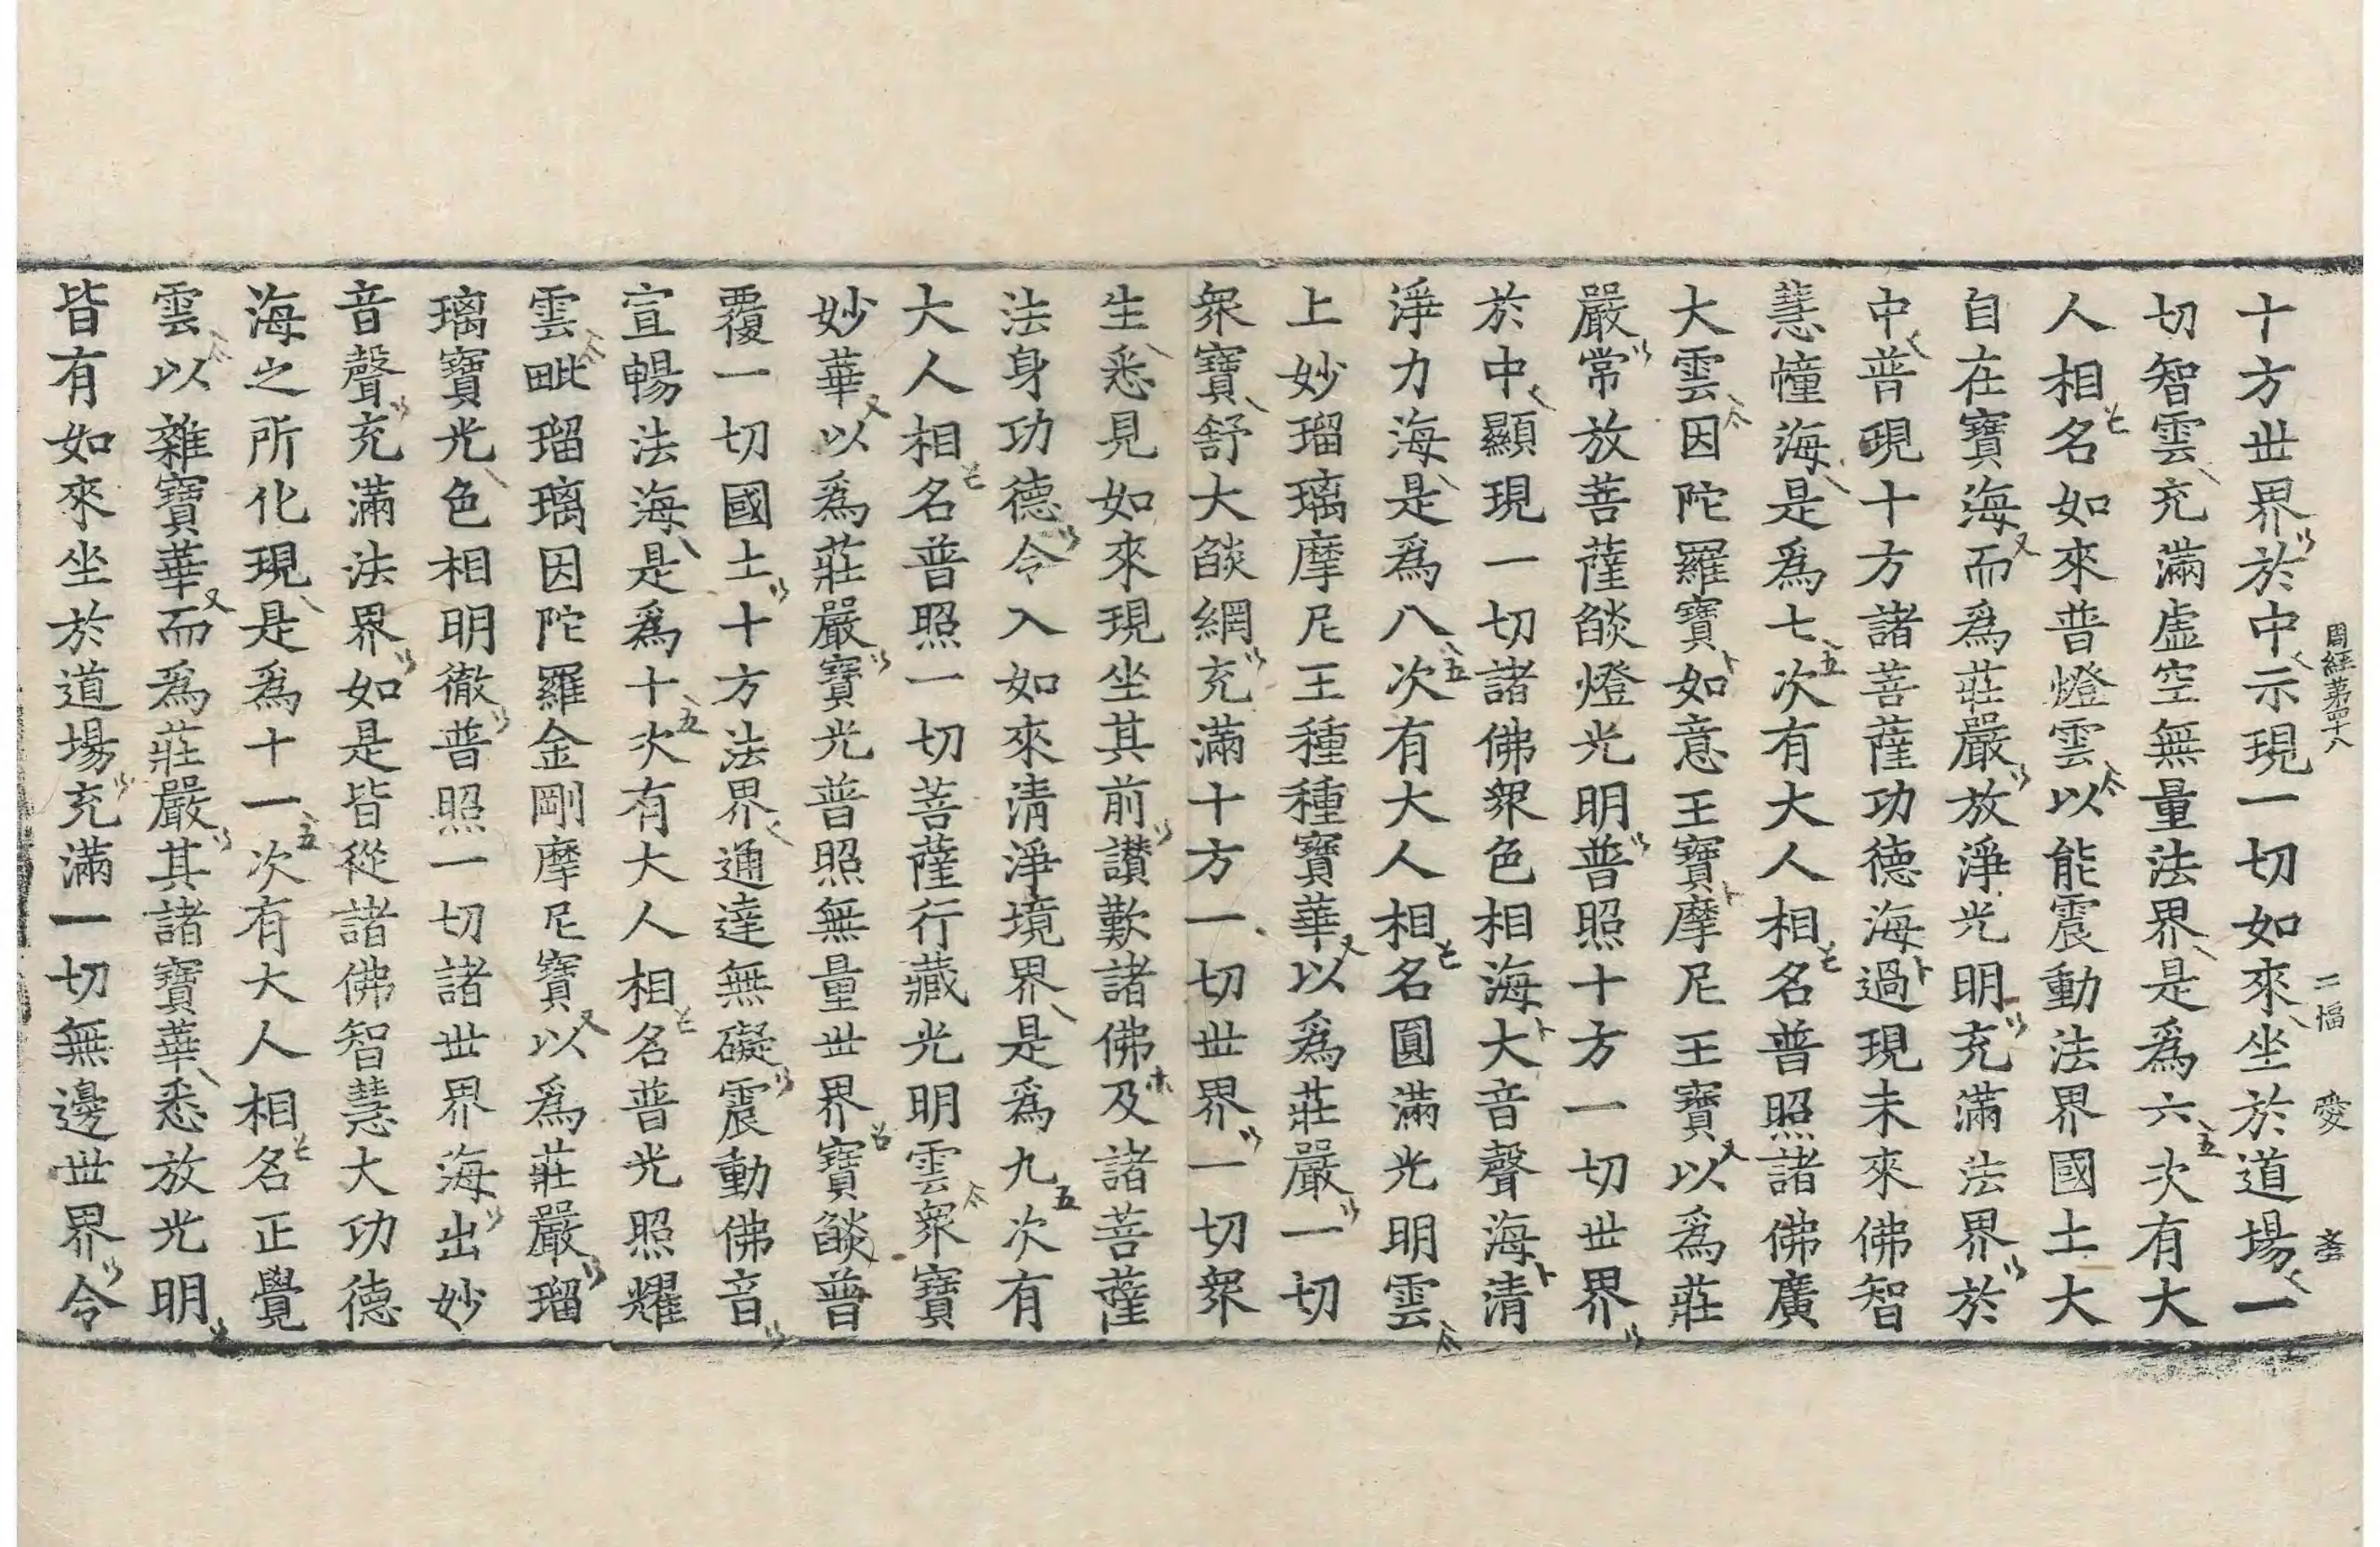 周經第四十八 二幅 愛
十方世界於中示現一切如來坐於道場一
切智雲充滿虛空無量法界是爲六次有大
人相名如來普燈雲以能震動法界國土大
自在寶海而爲莊嚴放淨光明充滿法界於
中普現十方諸菩薩功德海過現未來佛智
慧幢海是爲七次有大人相名普照諸佛廣
大雲因陀羅寶如意王寶摩尼王寶以爲莊
嚴常放菩薩燄燈光明普照十方一切世界
於中顯現一切諸佛衆色相海大音聲海清
淨力海是爲八次有大人相名圓滿光明雲
上妙瑠璃摩尼王種種寶華以爲莊嚴一切
衆寶舒大燄網充滿十方一切世界一切衆
生悉見如來現坐其前讚歎諸佛及諸菩薩
法身功德令入如來清淨境界是爲九次有
大人相名普照一切菩薩行藏光明雲衆寶
妙華以爲莊嚴寶光普照無量世界寶燄普
覆一切國土十方法界通達無礙震動佛音
宣暢法海是爲十次有大人相名普光照耀
雲毗瑠璃因陀羅金剛摩尼寶以爲莊嚴瑠
璃寶光色相明徹普照一切諸世界海出妙
音聲充滿法界如是皆從諸佛智慧大功德
海之所化現是爲十一次有大人相名正覺
雲以雜寶華而爲莊嚴其諸寶華悉放光明
皆有如來坐於道場充滿一切無邊世界令